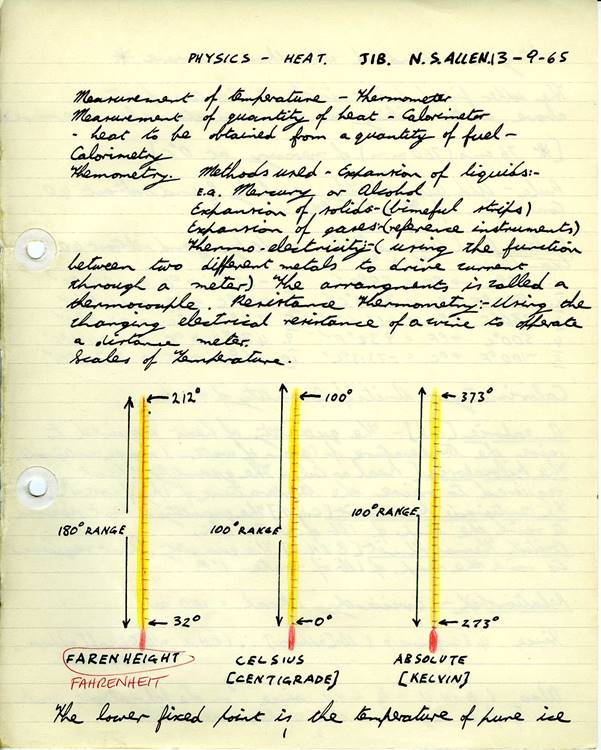 PHYSICS - HEAT. J1B. N.S.ALLEN. 13-9-65
Measurement of temperature - Thermometer
Measurement of quantity of heat - Calorimeter
- heat to be obtained from a quantity of fuel -
Calorimetry
Themometry. Methods used - Expansion of liquids:-
E.G. Mercury or Alcohol
Expansion of solids-(bimeful strips)
Expansion of gases:-(reference instruments)
Thermo-electricity:-( using the function
between two different metals to drive current
through a meter) The arrangments is called a
thermocouple. Resistance Thermometry:- Using the
changing electrical resistance of a wire to operate
a distance meter.
Scales of Temperature.
212° 100° 373°
180° RANGE 100° RANGE 100° RANGE
32° 0° 273°
FARENHEIGHT CELSIUS ABSOLUTE
FAHRENHEIT [CENTIGRADE] [KELVIN]
The lower fixed point is the temperature of pure ice
1